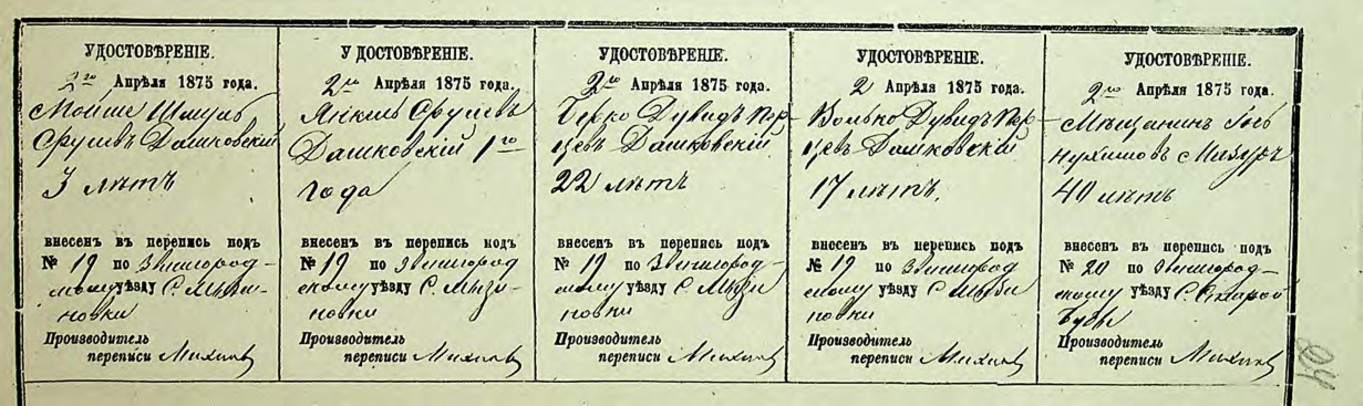 УДОСТОВѢРЕНІЕ.
2го Апрѣля 1875 года.
Мойше Шмуль
Срулевъ Дашковскій
3 лѣтъ
внесенъ въ перепись подъ
№ 19 по Звенигород-
скому уѣзду С. Мизи-
новки
Производитель
переписи
УДОСТОВѢРЕНІЕ.
2го Апрѣля 1875 года.
Янкель Срулевъ
Дашковскій 1го
года
внесенъ въ перепись подъ
№ 19 по Звенигород
скому уѣзду С. Мизи-
новки
Производитель
переписи
УДОСТОВѢРЕНІЕ.
2го Апрѣля 1875 года.
Берко Дувидъ
Дашковскій
22 лѣтъ
внесенъ въ перепись подъ
№ 19 по Звенигород-
скому уѣзду С. Мизи
новки
Производитель
переписи
УДОСТОВѢРЕНІЕ.
2 Апрѣля 1875 года.
Волько Дувидъ
Дашковскій
17 лѣтъ.
внесенъ въ перепись подъ
№ 19 по Звенигород
скому уѣзду С Мизи
новки
Производитель
переписи
УДОСТОВѢРЕНІЕ.
2го Апрѣля 1875 года.
Мѣщанинъ
Нухимовъ
40 лѣтъ
внесенъ въ перепись подъ
№ 20 по Звенигород-
скому уѣзду С. Старой
Буды
Производитель
переписи